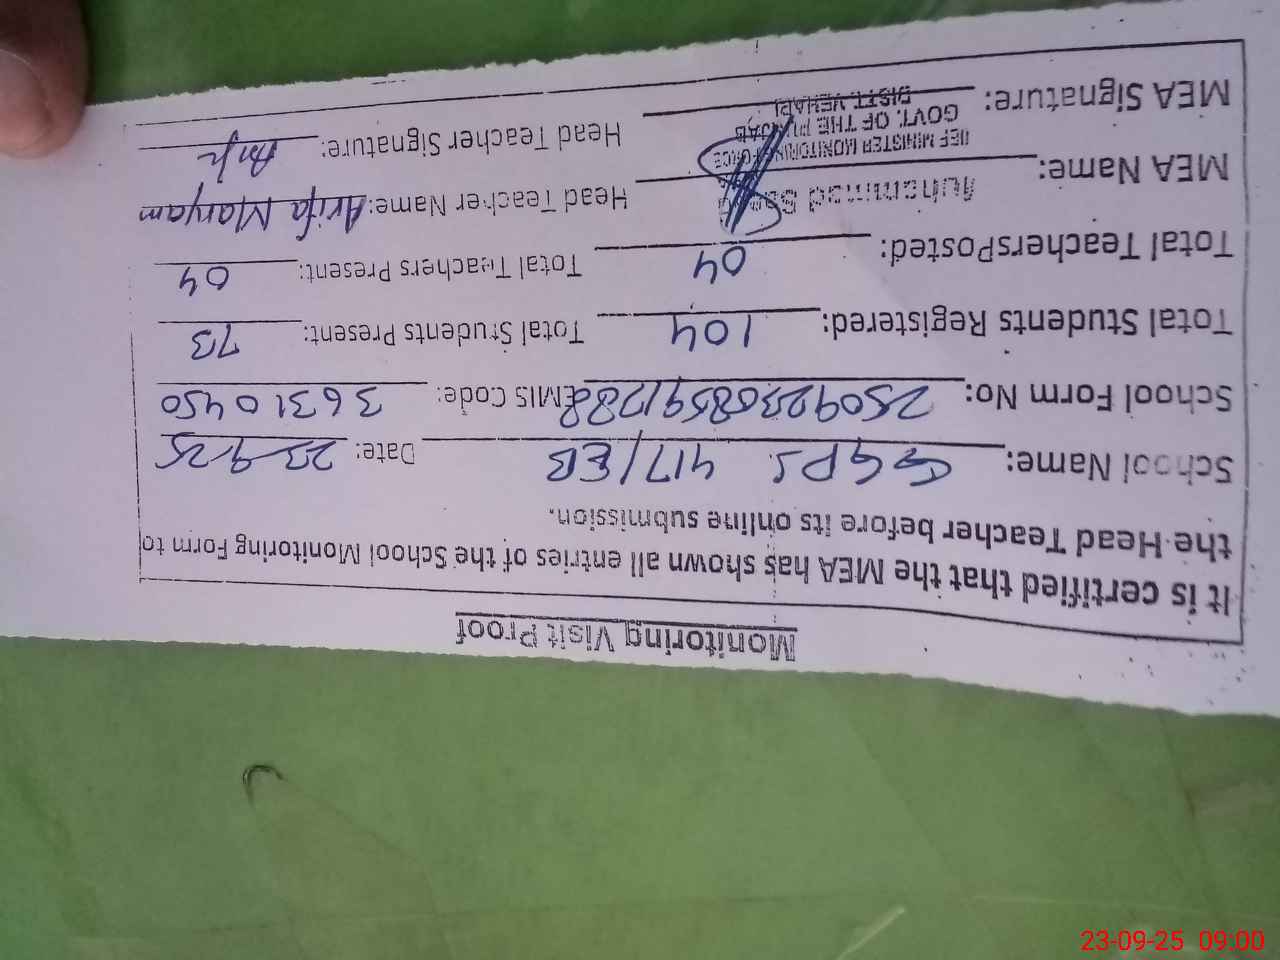 Monitoring Visit Proof
It is certified that the MEA has shown all entries of the School Monitoring Form to
the Head Teacher before its online submission.
School Name: GGPS 417/EB Date: 23-9-25
School Form No: 25092308591288 EMIS Code: 36310450
Total Students Registered: 104 Total Students Present: 73
Total TeachersPosted: 04 Total Teachers Present: 04
MEA Name: Muhammad Head Teacher Name: Arifa Maryam
MEA Signature: Head Teacher Signature:
MINISTER MONITORING FORCE
GOVT. OF THE PUNJAB
DISTT. VEHARI
23-09-25 09:00